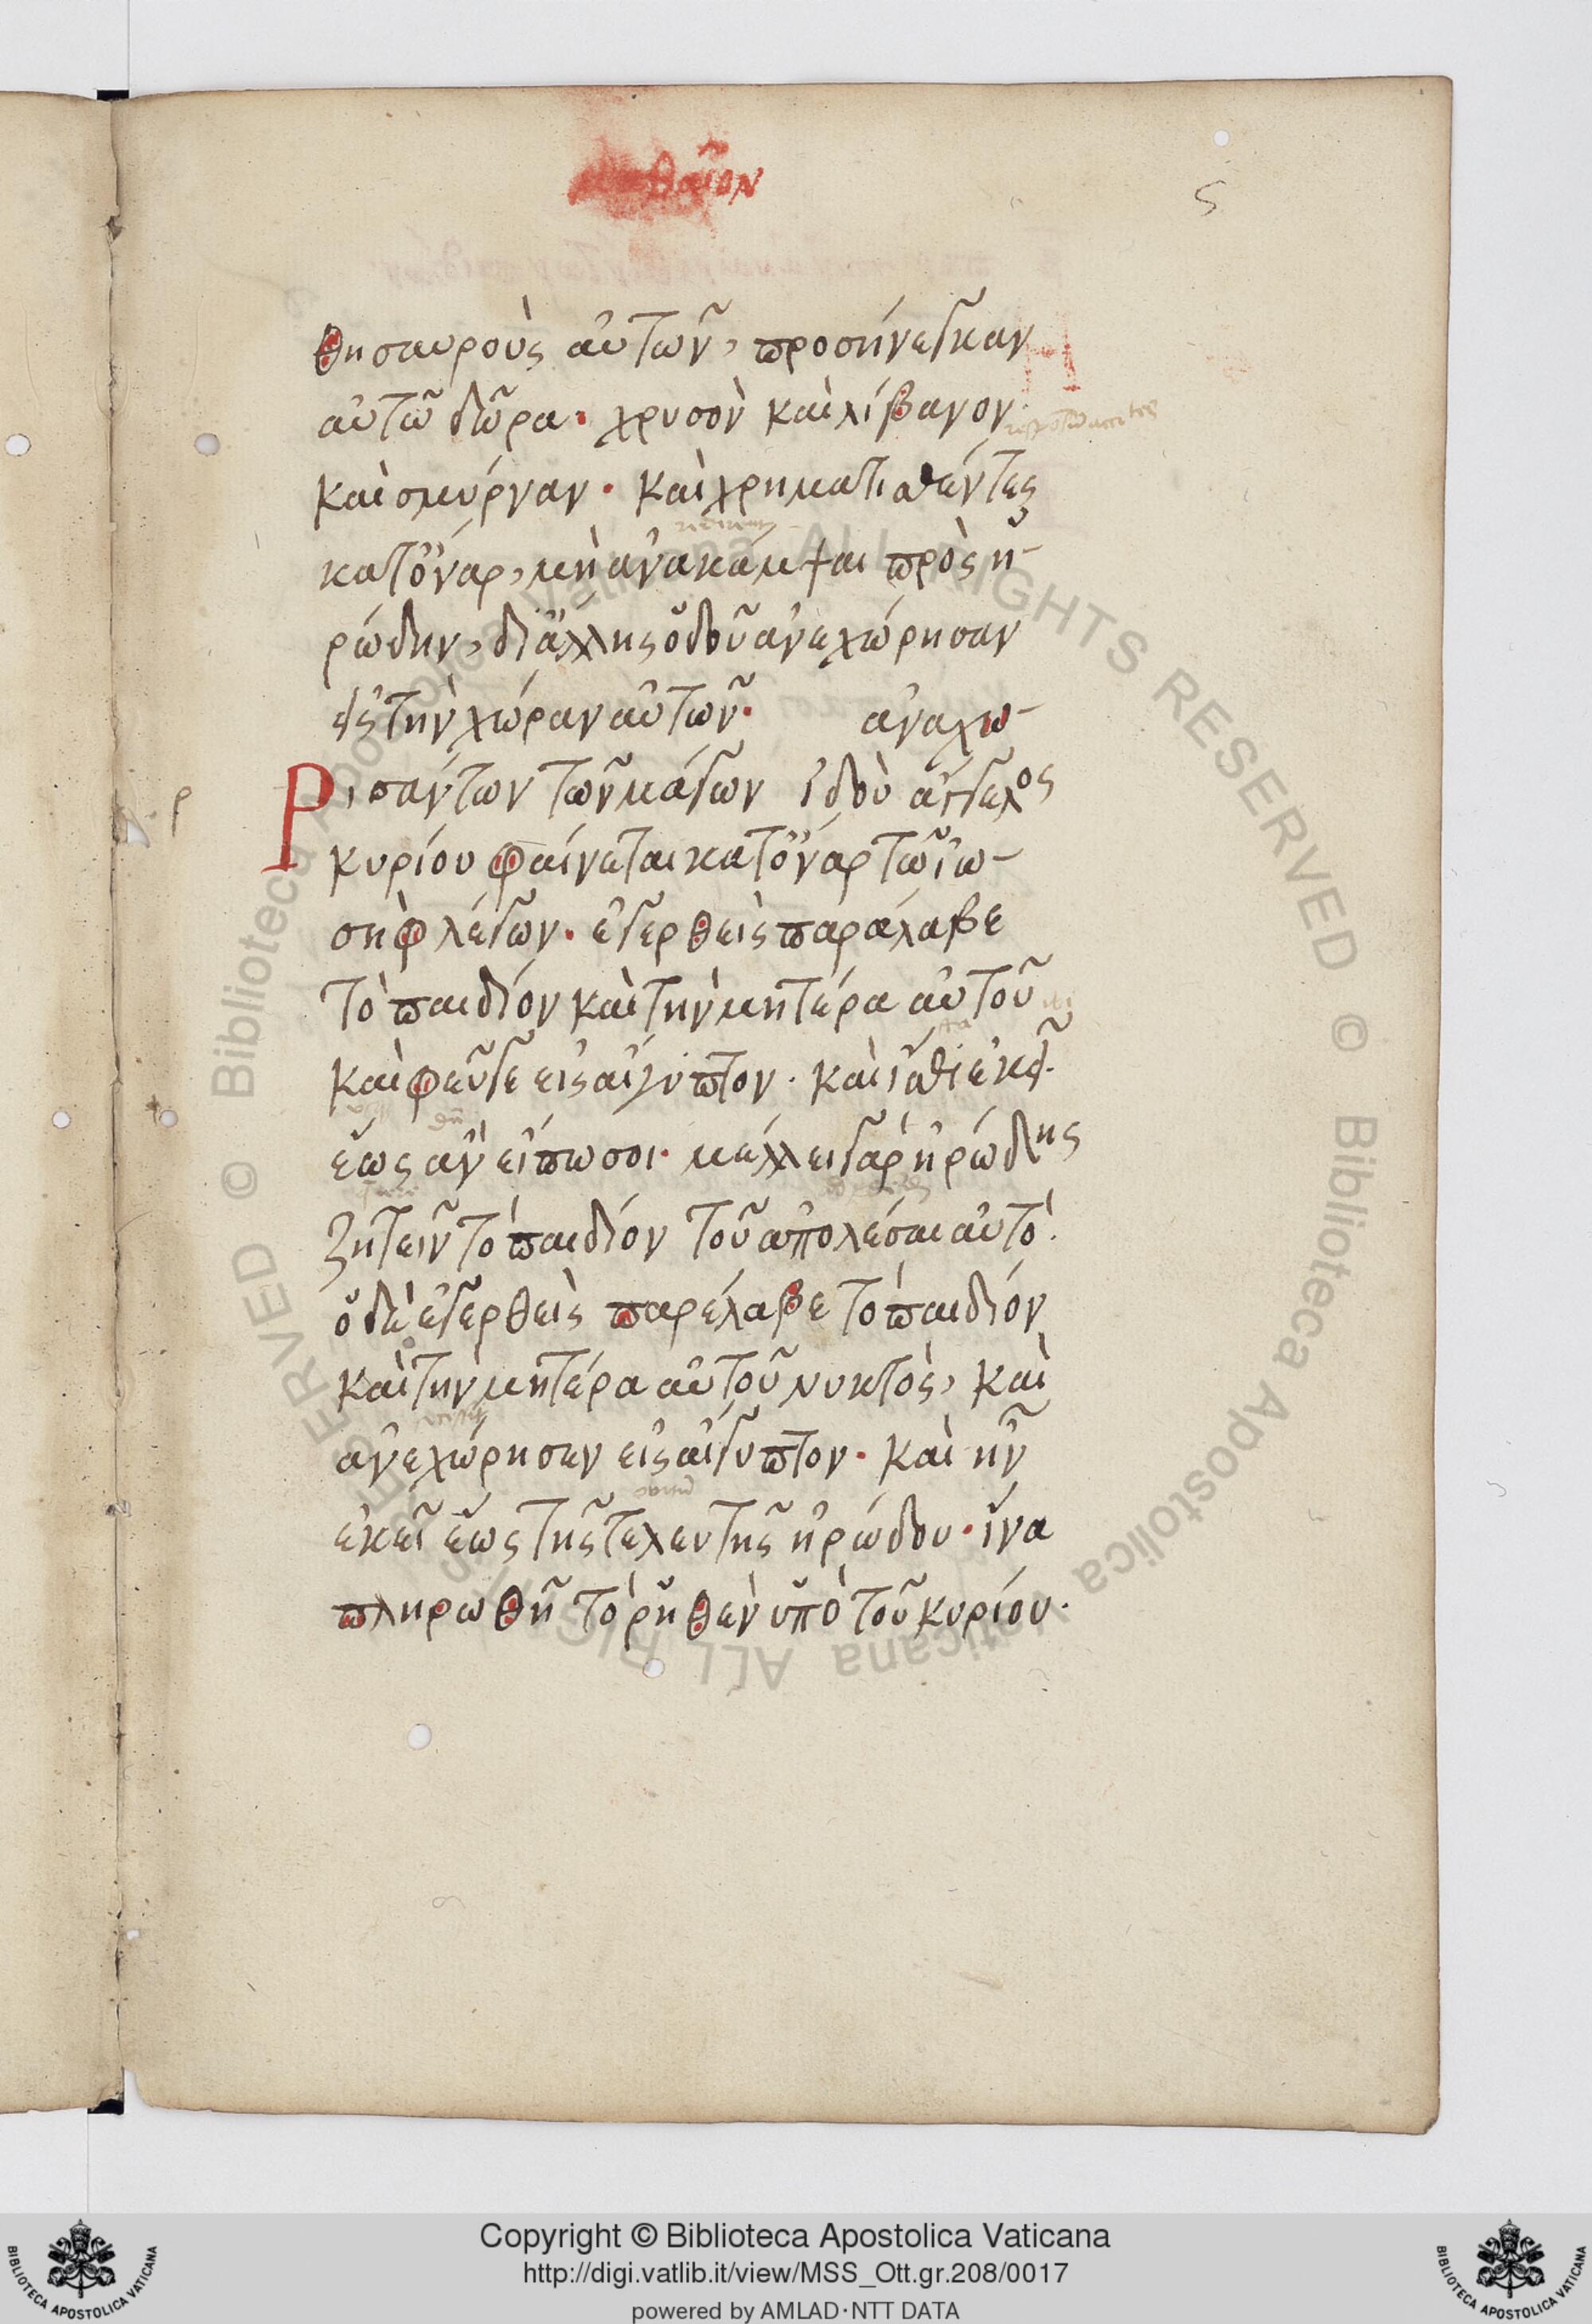 θαῖον
ϛ
θησαυροὺς αὐτῶν, προσήνεγκαν
αὐτῶ δῶρα· χρυσὸν καὶ λίβανον
καὶ σμύρναν· καὶ χρηματισθέντες
κατόναρ, μὴ ἀνακάμψαι πρὸς ἡ-
ρώδην, διἄλλης ὁδοῦ ἀνεχώρησαν
εἰς τὴν χώραν αὐτῶν· ἀναχω-
Ρισάντων τῶν μάγων ἰδοὺ ἄγγελος
κυρίου φαίνεται κατόναρ τῶ ἰω-
σὴφ λέγων· ἐγερθεὶς παράλαβε
τὸ παιδίον καὶ τὴν μητέρα αὐτοῦ
καὶ φεῦγε εἰς αἴγυπτον· καὶ ἴσθι ἐκεῖ·
ἕως ἂν εἴπω σοι· μέλλει γὰρ ἡρώδης
ζητεῖν τὸ παιδίον τοῦ ἀπολέσαι αὐτό·
ὁ δὲ ἐγερθεὶς παρέλαβε τὸ παιδίον
καὶ τὴν μητέρα αὐτοῦ νυκτὸς, καὶ
ἀνεχώρησεν εἰς αἴγυπτον· καὶ ἦν
ἐκεῖ ἕως τῆς τελευτῆς ἡρώδου· ἵνα
πληρωθῆ τὸ ῥηθὲν ὑπὸ τοῦ κυρίου·
Copyright © Biblioteca Apostolica Vaticana
http://digi.vatlib.it/view/MSS_Ott.gr.208/0017
powered by AMLAD·NTT DATA